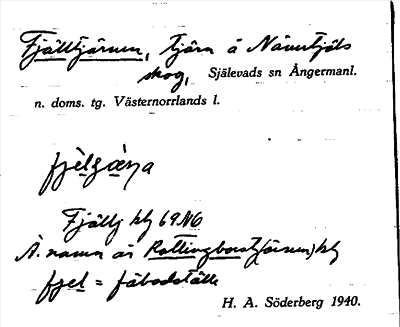 Fjälltjärnen, tjärn å Nävertjäls
skog, Själevads sn Ångermanl.
n. doms. tg. Västernorrlands l.
Fjälltj kbl 69 N6
Ä. namn är Rottingbovatj(ärnen) kbl
fjel = fäbodställe
H. A. Söderberg 1940.